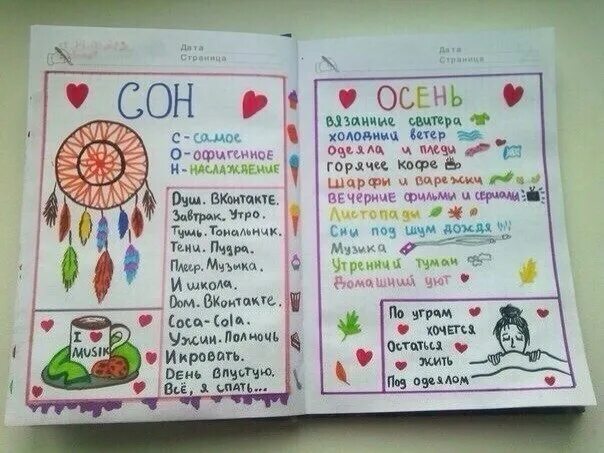 Дата
Страница
СОН
С - самое
О - офигенное
Н - наслаждение
Душ. ВКонтакте.
Завтрак. Утро.
Тушь. Тональник.
Тени. Пудра.
Плеер. Музыка.
И школа.
Дом. ВКонтакте.
Coca-Cola.
Ужин. Полночь
И кровать.
День впустую.
Всё, я спать...
I ❤
MUSIK
Дата
Страница
ОСЕНЬ
Вязанные свитера
холодный ветер
Одеяла и пледы
горячее кофе
Шарфы и варежки
Вечерние фильмы и сериалы
Листопады
Сны под шум дождя
Музыка
Утренний туман
Домашний уют
По утрам
хочется
Остаться
жить
Под одеялом